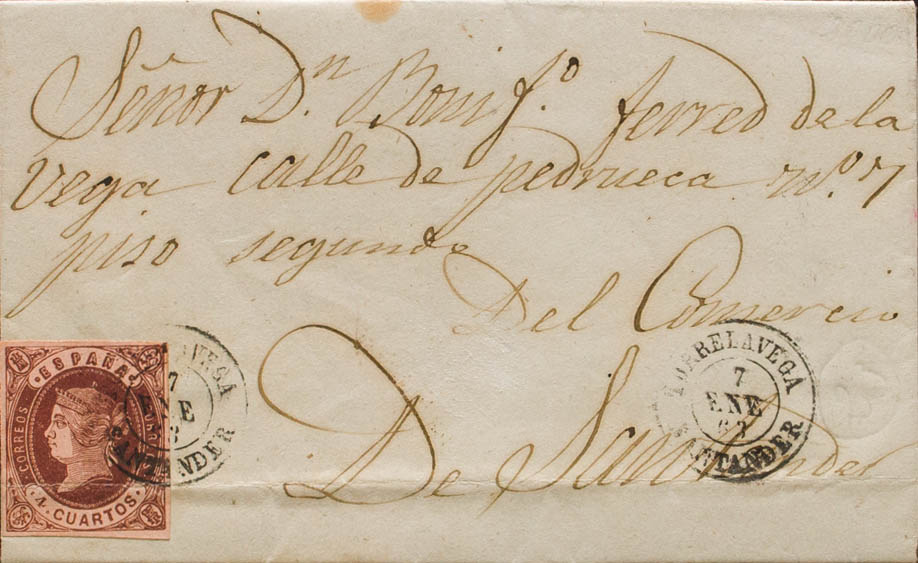 Señor Dn Bonifo. ferred de la
vega calle de pedrueca no. 7
piso segundo
Del Comercio
De Santander
ESPAÑA
CORREOS
4 CUARTOS
LAVEGA
7
ENE
3
SANTANDER
TORRELAVEGA
7
ENE
63
SANTANDER